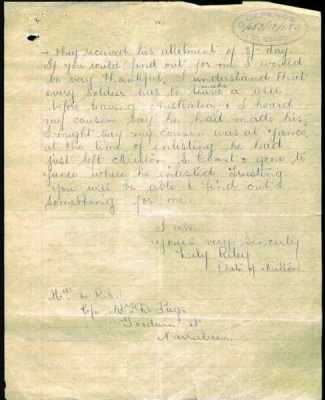 + they received his allotment of 3/- day.
If you could find out for me I would
be very thankful, I understand that
every soldier has to make a will
before leaving Australia & I heard
my cousin say he had made his,
I might say my cousin was at
at the time of enlisting he had
just left Milton, & gone to
where he enlisted. Trusting
you will be able to find out
something for me.
I am
yours very sincerely
Lily Riley
(late of Milton)
L
C/o
Goodwin St
Narrabeen